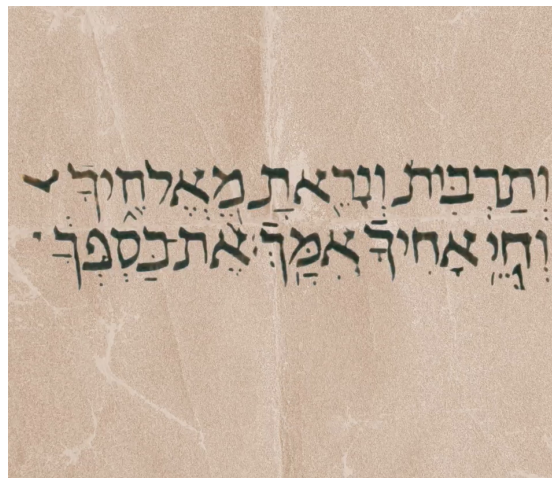 וְתַרְבִּית וְיָרֵאתָ מֵאֱלֹהֶיךָ
וְחֵי אָחִיךָ עִמָּךְ׃ אֶת־כַּסְפְּךָ